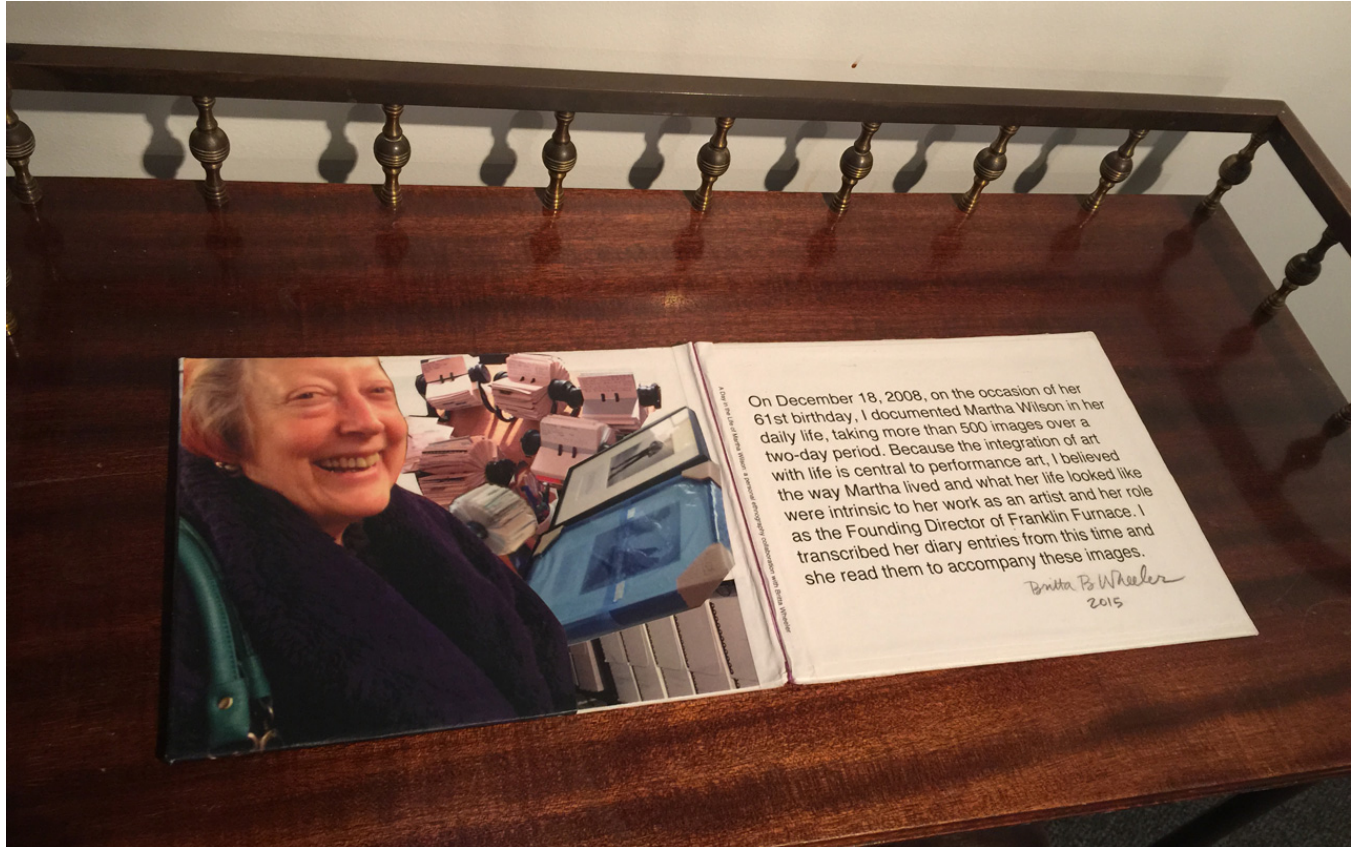 A Day in the Life of Martha Wilson: a personal ethnography collaboration with Britta Wheeler
On December 18, 2008, on the occasion of her
61st birthday, I documented Martha Wilson in her
daily life, taking more than 500 images over a
two-day period. Because the integration of art
with life is central to performance art, I believed
the way Martha lived and what her life looked like
were intrinsic to her work as an artist and her role
as the Founding Director of Franklin Furnace. I
transcribed her diary entries from this time and
she read them to accompany these images.
Britta B Wheeler
2015